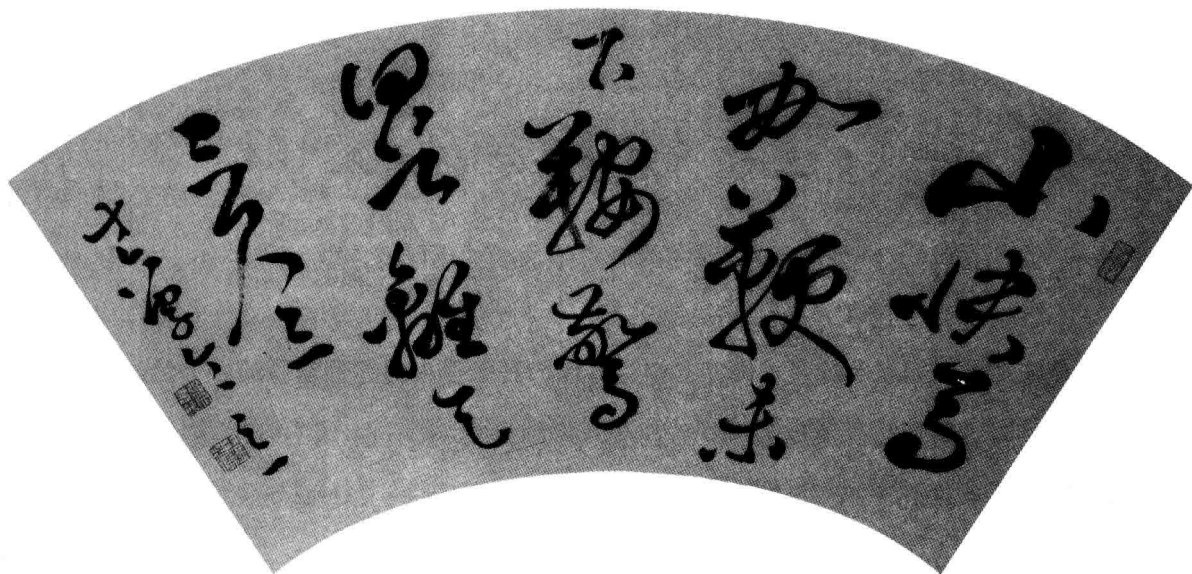 山快馬
加鞭未
下鞍驚
回首離天
三尺三